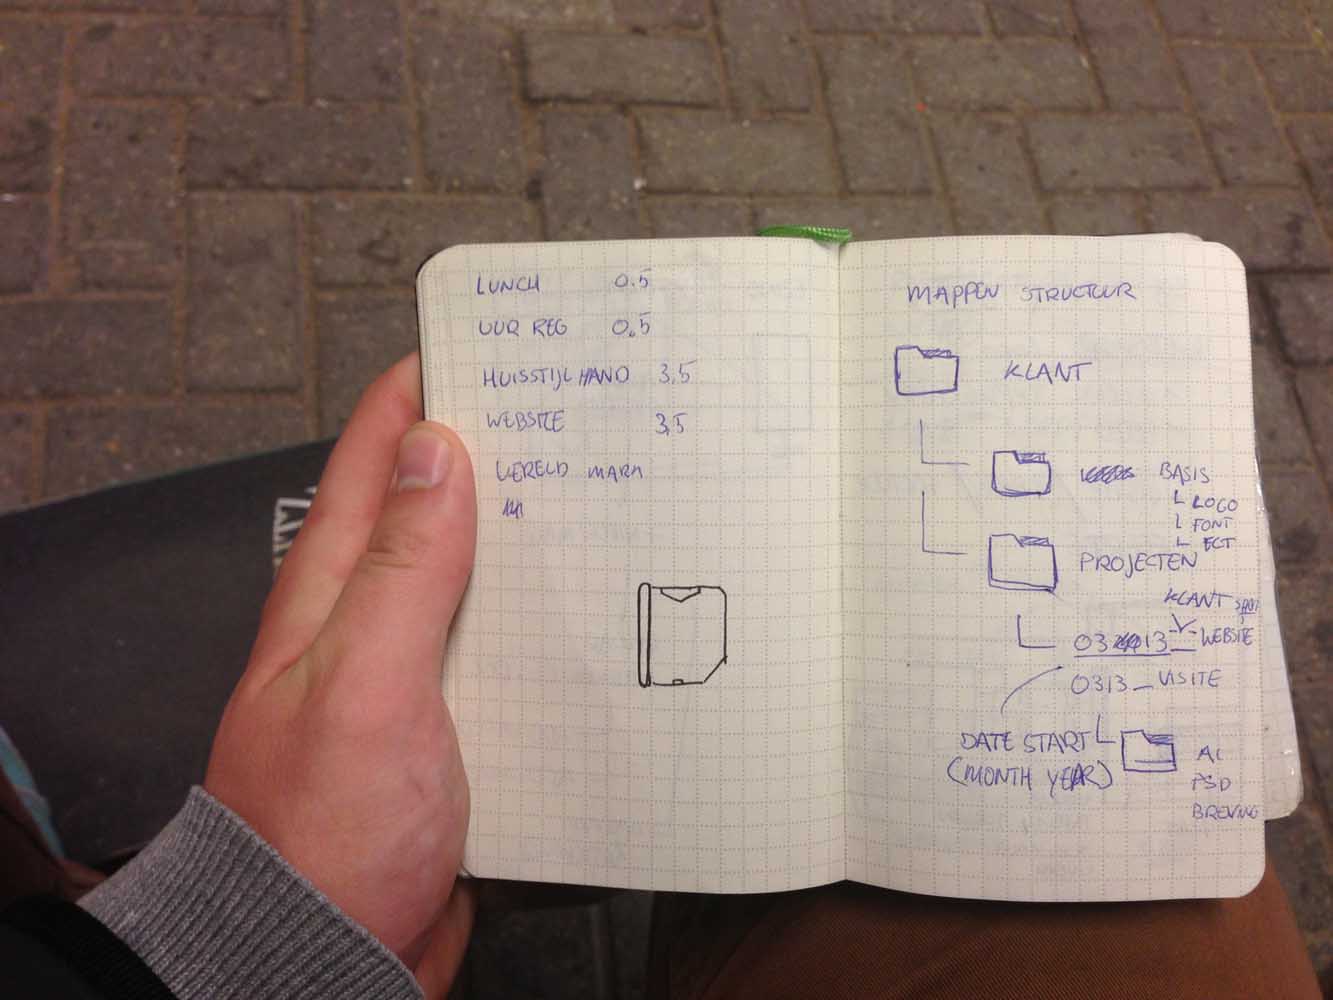 LUNCH 0.5
UUR REG 0.5
HUISSTIJL HAND 3,5
WEBSITE 3,5
WERELD MARK
MAPPEN STRUCTUUR
KLANT
BASIS
LOGO
FONT
ECT
PROJECTEN
KLANT
03 13 _ WEBSITE
0313 _ VISITE
DATE START
(MONTH YEAR)
AI
PSD